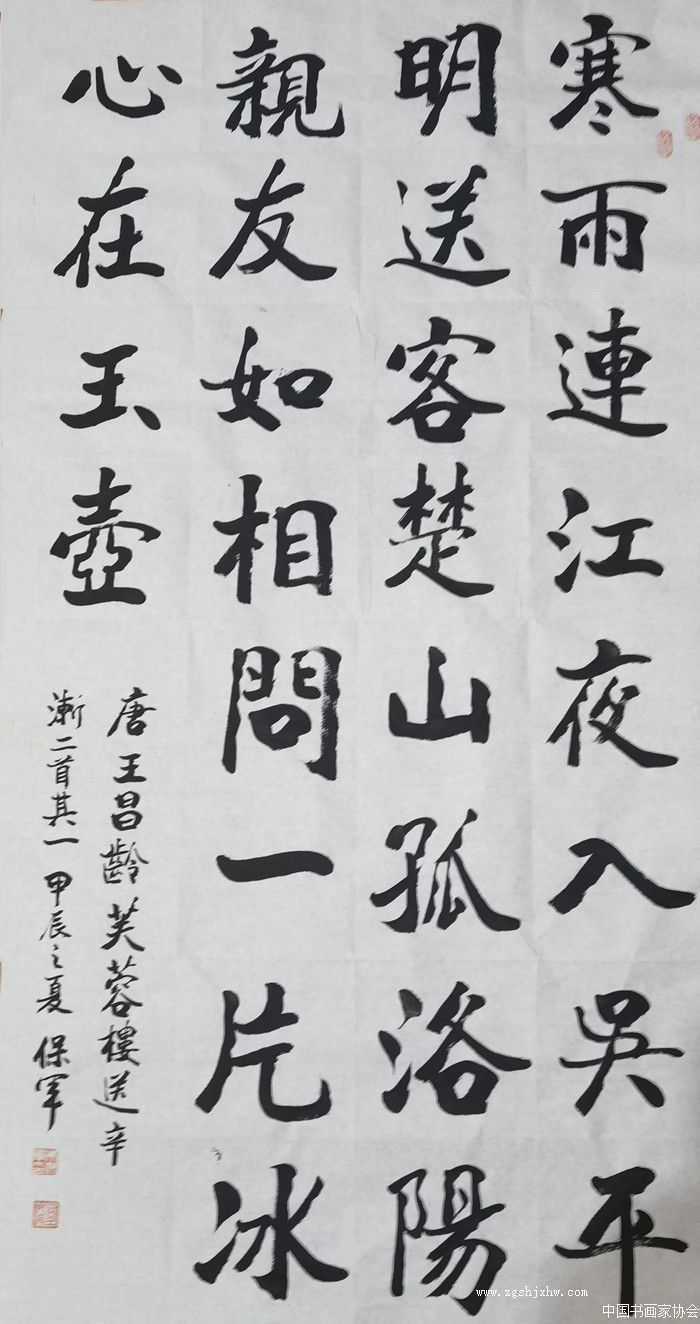 寒雨連江夜入吳平
明送客楚山孤洛陽
親友如相問一片冰
心在玉壺
唐王昌齡芙蓉樓送辛
漸二首其一 甲辰之夏 保军
www.zgshjxhw.com
中国书画家协会